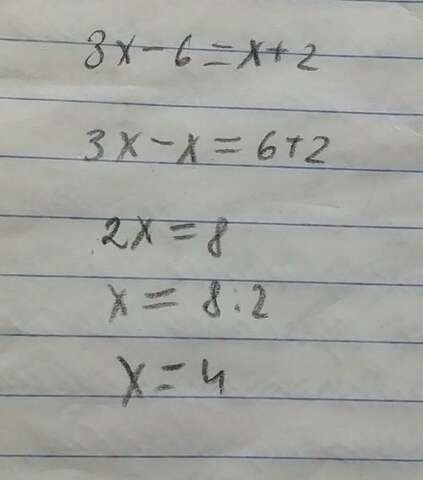 3x-6=x+2
3x-x=6+2
2x=8
x=8:2
x=4